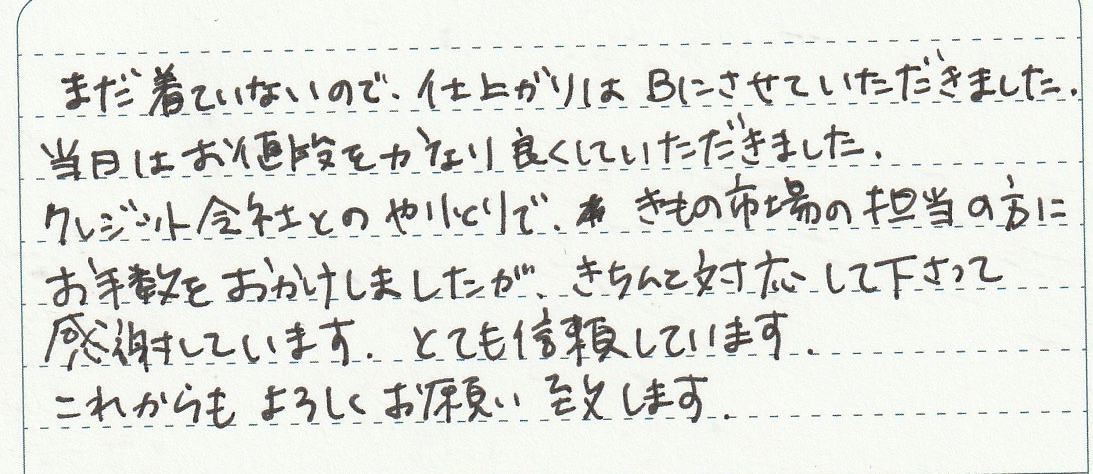 まだ着ていないので、仕上がりはBにさせていただきました.
当日はお値段をかなり良くしていただきました.
クレジット会社とのやりとりで、きもの市場の担当の方に
お手数をおかけしましたが、きちんと対応して下さって
感謝しています. とても信頼しています.
これからもよろしくお願い致します.